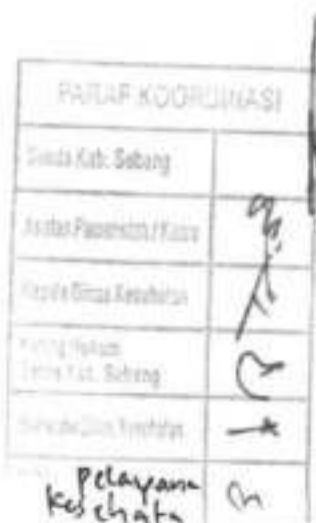 PARAF KOORDINASI
Sekda Kab. Subang
Asisten Pemerintah / Kesra
Kepala Dinas Kesehatan
Kabag Hukum
Setda Kab. Subang
Dinas Kesehatan
Pelayanan
Kesehata